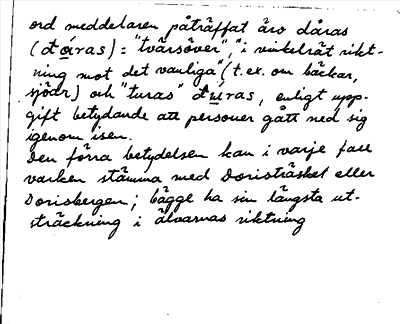 ord meddelaren påträffat äro dåras
(dåras) = "tvärsöver", "i vinkelrät rikt-
ning mot det vanliga" (t.ex. om bäckar,
sjöar) och "turas" turas, enligt upp-
gift betydande att personer gått ned sig
igenom isen.
Den förra betydelsen kan i varje fall
varken stämma med Doristräsket eller
Dorisbergen; bägge ha sin längsta ut-
sträckning i älvarnas riktning